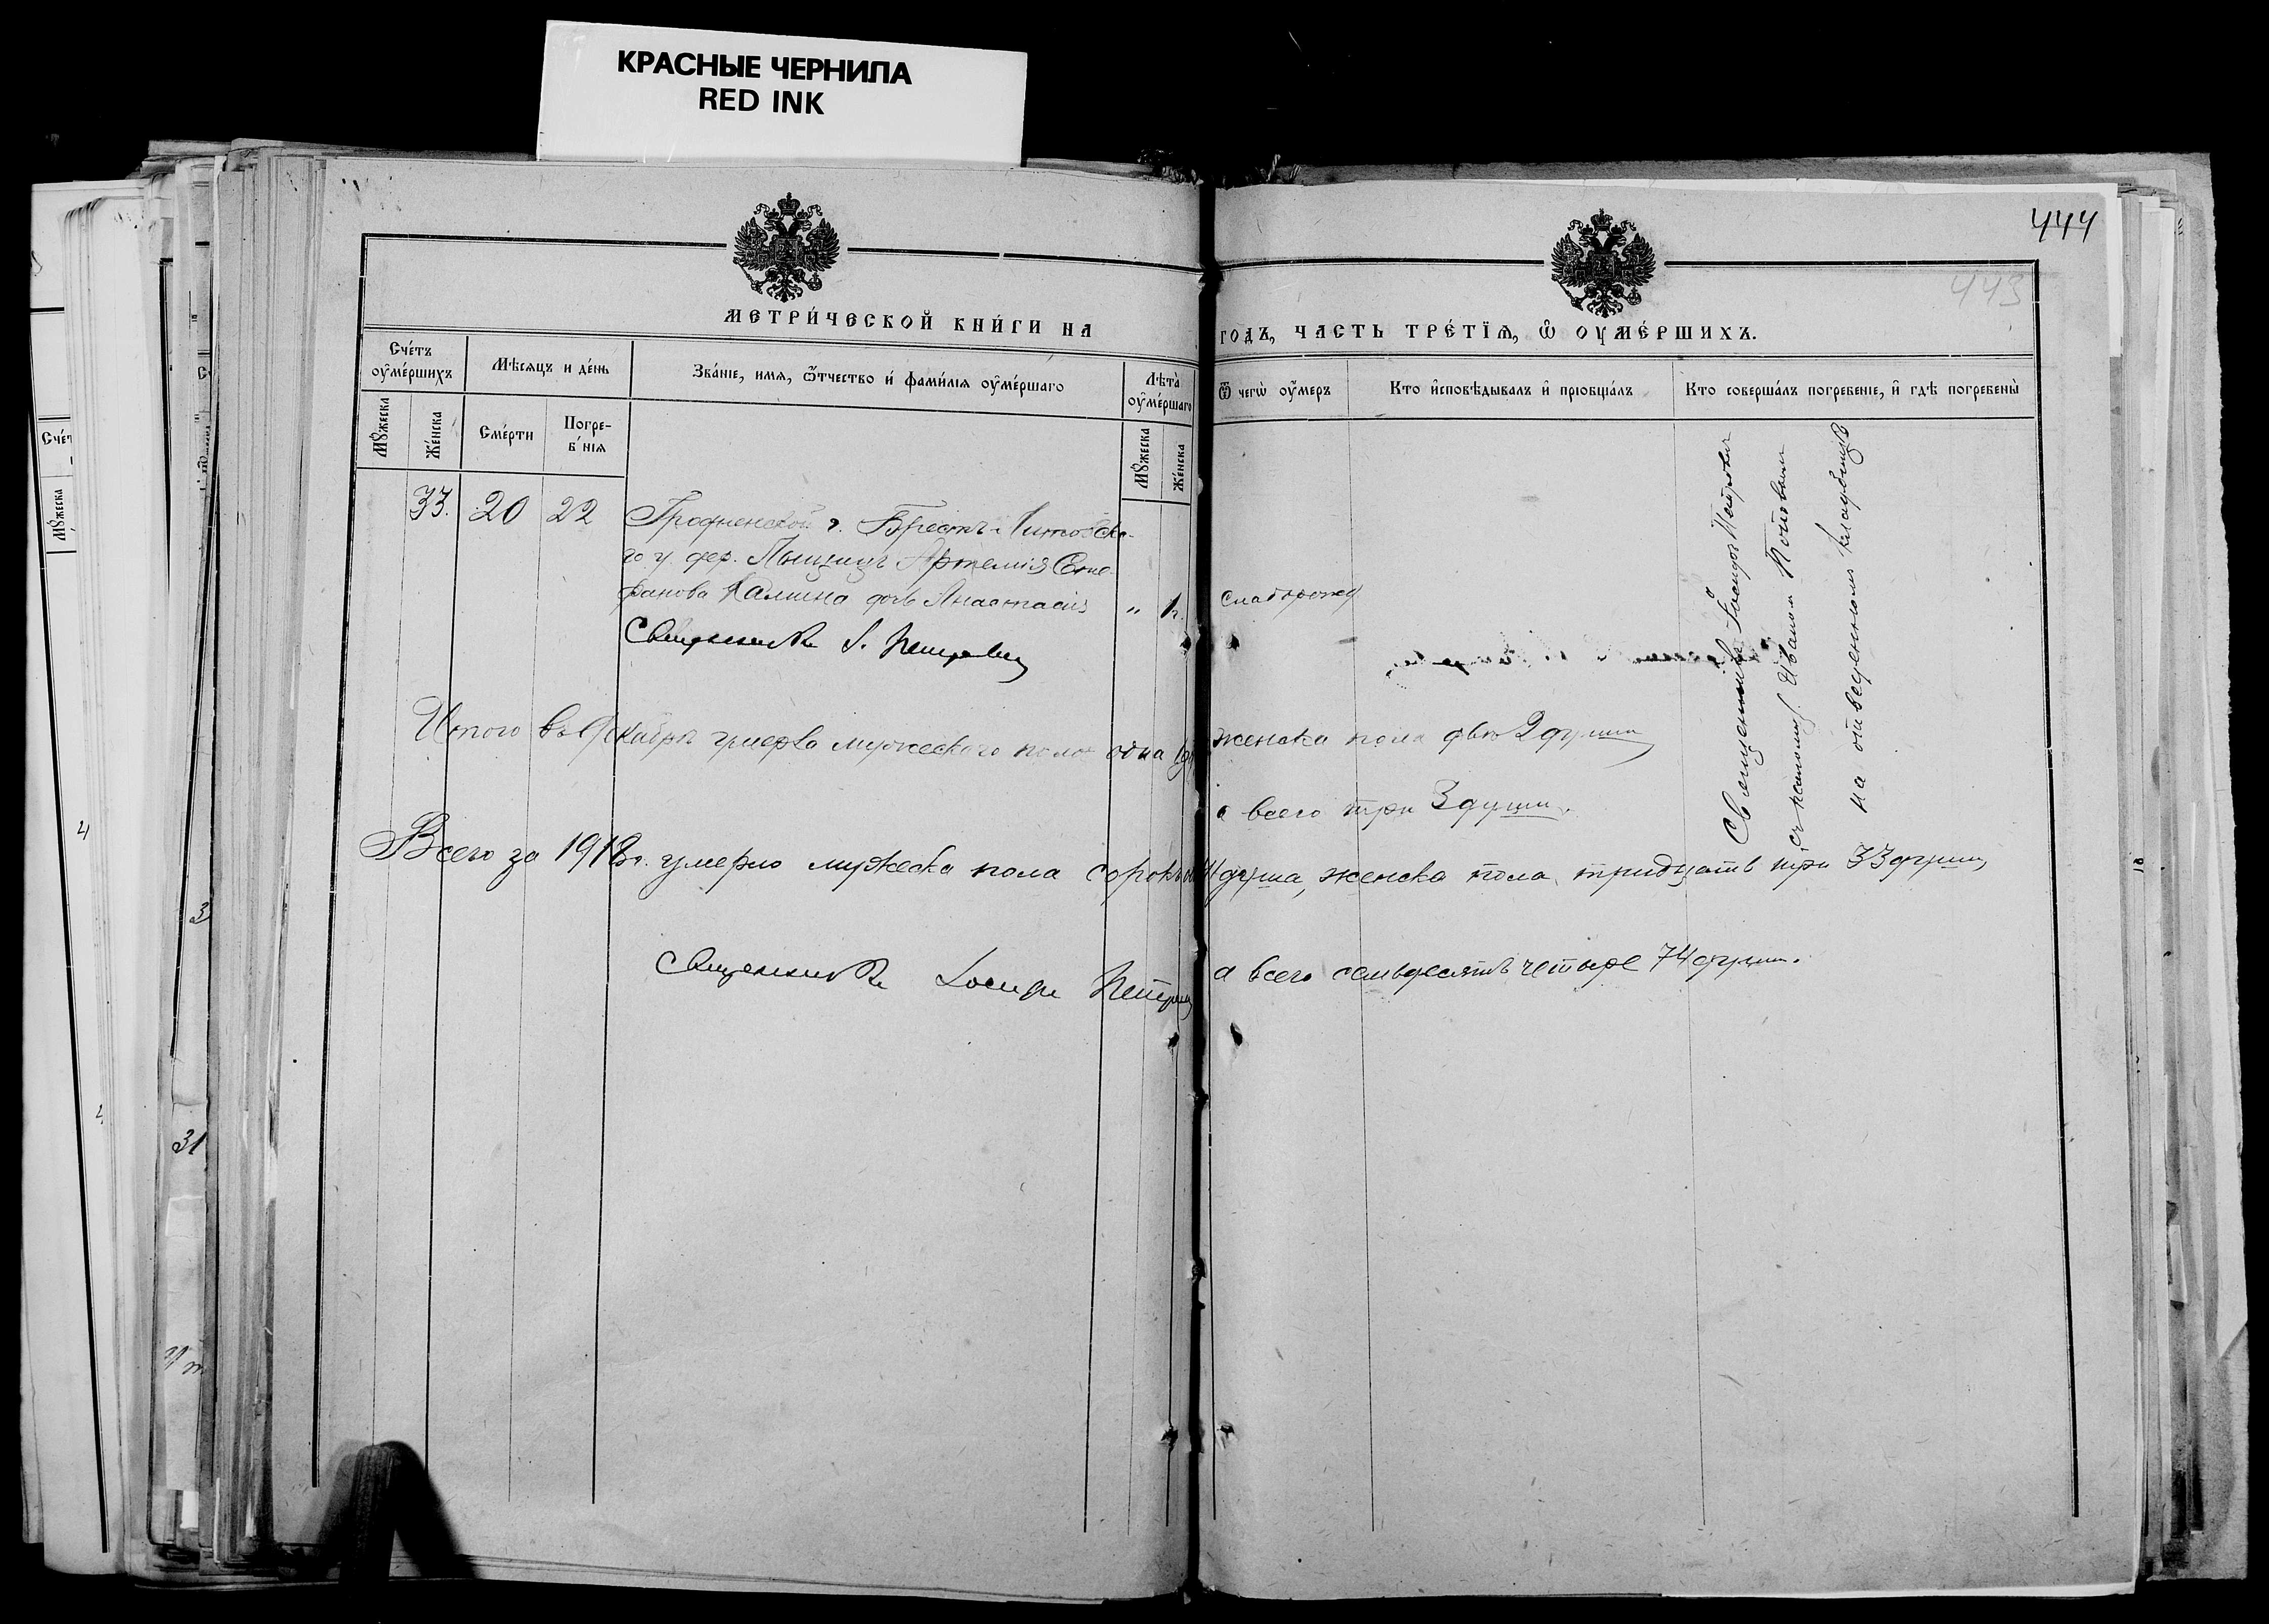 КРАСНЫЕ ЧЕРНИЛА
RED INK
444
443
МЕТРИ́ЧЕСКОЙ КНИ́ГИ НА
ГОДЪ, ЧАСТЬ ТРЕ́ТЇѦ, Ѽ ОУМЕ́РШИХЪ.
Сче́тъ оуме́ршихъ
Мѣсяцъ и де́нь
Зва́нїе, имѧ, ѻтчество и фами́лїѧ оуме́ршаго
Лѣта̀ оуме́ршаго
Ѿ чегѡ̀ оумеръ
Кто исповѣдывалъ и прїобща́лъ
Кто соверша́лъ погребенїе, и гдѣ погребены̀
Мꙋжеска
Же́нска
Сме́рти
Погреб́нїѧ
Мꙋжеска
Же́нска
33. 20 22
Гродненской г. Брестъ-Литовско-
го у. дер. Лыщицъ Артемія Сте-
фанова Калина дочь Анастасія " 1 г. слаборожд
Священникъ І. Петрович
Священникъ Іосифъ Петрович
съ псаломщ. Иваном
на отведенномъ кладбищѣ
Итого въ декабрѣ умерло мужеского пола одна женска пола двѣ 2 души
а всего три 3 души.
Всего за 1918 г. умерло мужеска пола сорокъ душа, женска пола тридцать три 33 души,
а всего семьдесятъ четыре 74 души.
Священникъ Іосифъ Петрович